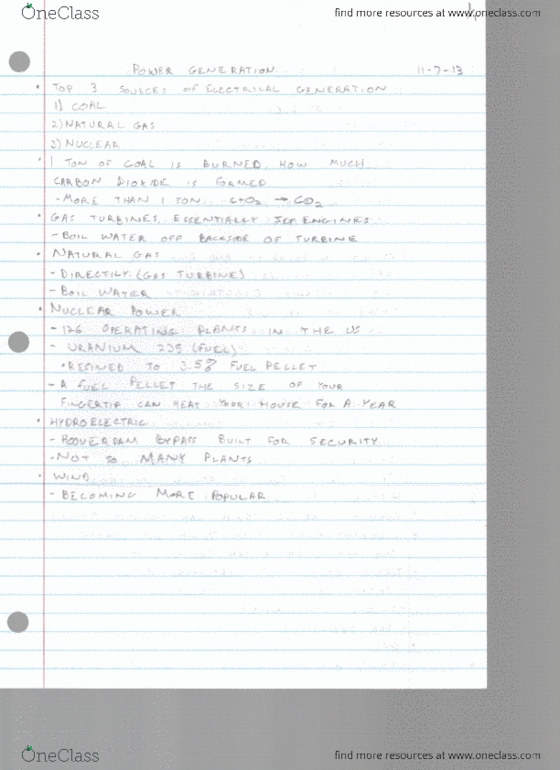 OneClass
find more resources at www.oneclass.com
POWER GENERATION 11-7-13
• TOP 3 SOURCES OF ELECTRICAL GENERATION
1) COAL
2) NATURAL GAS
3) NUCLEAR
• 1 TON OF COAL IS BURNED, HOW MUCH
CARBON DIOXIDE IS FORMED
- MORE THAN 1 TON C+O2 → CO2
• GAS TURBINES ESSENTIALLY JET ENGINES
- BOIL WATER OFF BACKSIDE OF TURBINE
• NATURAL GAS
- DIRECTLY (GAS TURBINE)
- BOIL WATER
• NUCLEAR POWER
- 126 OPERATING PLANTS IN THE US
- URANIUM 235 (FUEL)
• REFINED TO 3.5% FUEL PELLET
- A FUEL PELLET THE SIZE OF YOUR
FINGERTIP CAN HEAT YOUR HOUSE FOR A YEAR
• HYDROELECTRIC
- HOOVER DAM BYPASS BUILT FOR SECURITY
- NOT SO MANY PLANTS
• WIND
- BECOMING MORE POPULAR
OneClass
find more resources at www.oneclass.com